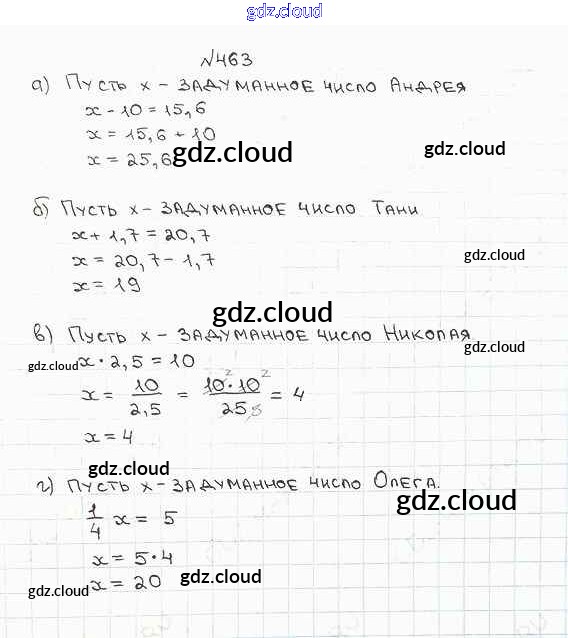 gdz.cloud
№463
а) Пусть x – задуманное число Андрея
x - 10 = 15,6
x = 15,6 + 10
x = 25,6
gdz.cloud
gdz.cloud
б) Пусть x – задуманное число Тани
x + 1,7 = 20,7
x = 20,7 - 1,7
gdz.cloud
x = 19
gdz.cloud
в) Пусть x – задуманное число Николая
gdz.cloud
gdz.cloud
x · 2,5 = 10
x = 10/2,5 = 10² · 10²/25 5 = 4
x = 4
gdz.cloud
г) Пусть x – задуманное число Олега.
gdz.cloud
1/4 x = 5
x = 5·4
x = 20
gdz.cloud
gdz.cloud
gdz.cloud